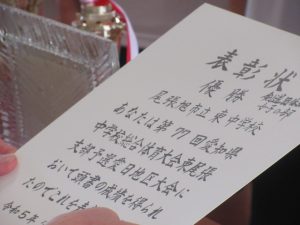 表彰状
優勝
尾張旭市立 東中学校
あなたは第77回愛知県
中学校総合体育大会東尾張
支部予選愛日地区大会に
おいて頭書の成績を得られ
たのでこれを
令和5年